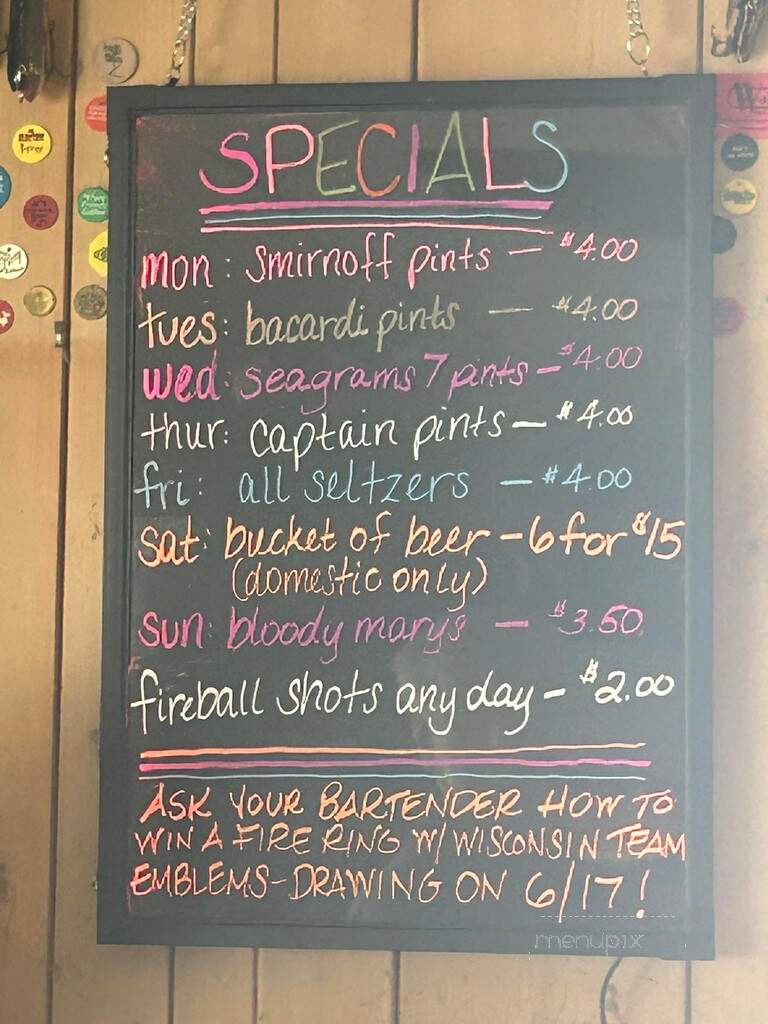 SPECIALS
mon: smirnoff pints — $4.00
tues: bacardi pints — $4.00
wed: seagrams 7 pints — $4.00
thur: captain pints — $4.00
fri: all seltzers — $4.00
sat: bucket of beer - 6 for $15
(domestic only)
sun: bloody marys — $3.50
fireball shots any day - $2.00
ASK YOUR BARTENDER HOW TO
WIN A FIRE RING W/ WISCONSIN TEAM
EMBLEMS - DRAWING ON 6/17!
menupix